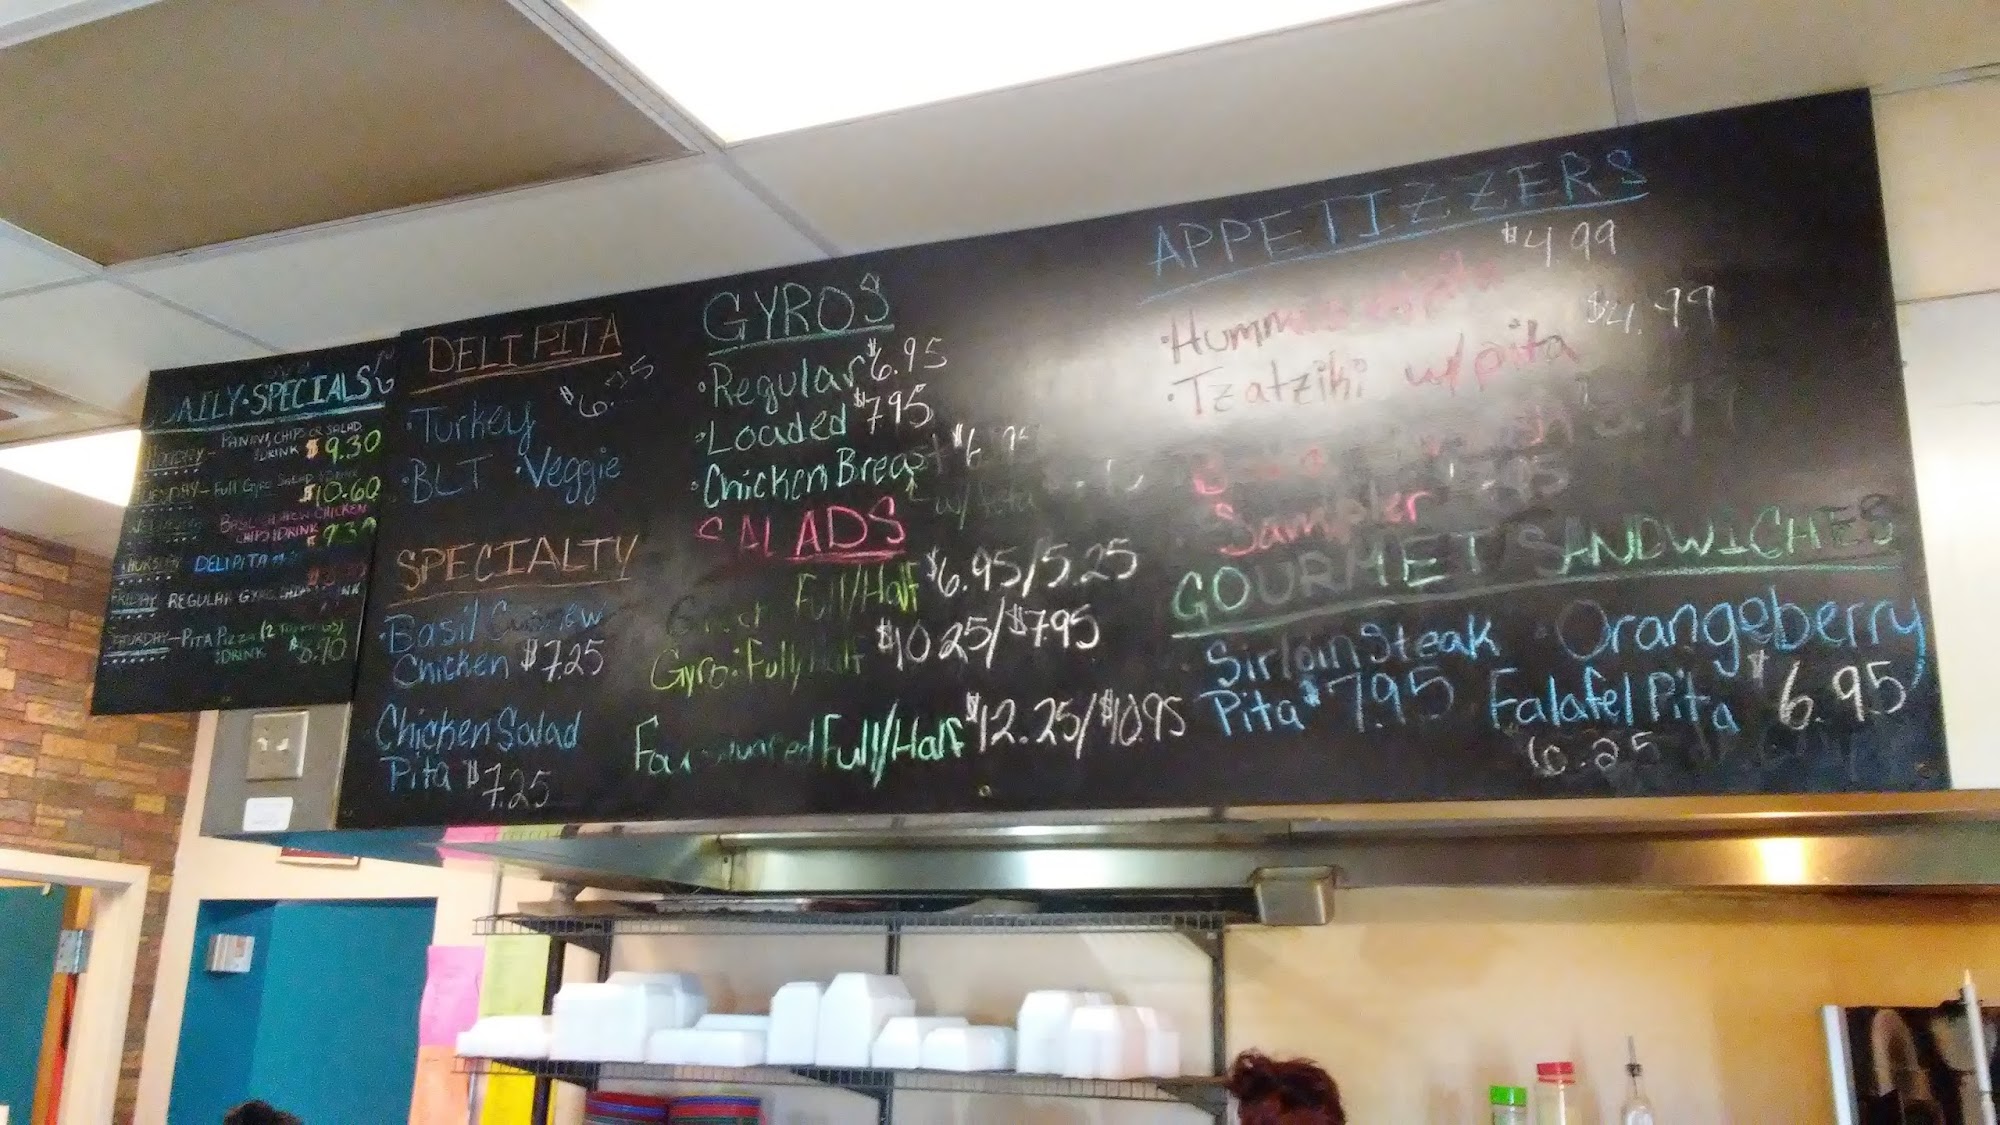 DAILY·SPECIALS
MONDAY - PANINI, CHIPS OR SALAD
DRINK $9.30
TUESDAY - FULL GYRO SALAD
$10.60
CHICKEN
CHIPS DRINK 9.39
THURSDAY DELI PITA
FRIDAY REGULAR GYRO
SATURDAY - PITA PIZZA (2
DRINK
DELI PITA
·Turkey
·BLT ·Veggie
SPECIALTY
·Basil Cashew
Chicken $7.25
Chicken Salad
Pita $7.25
GYROS
·Regular $6.95
·Loaded $7.95
·Chicken Breast $6.95
w/ Pita
SALADS
Greek Full/Half $6.95/5.25
Gyro: Full/Half $10.25/$7.95
Full/Half $12.25/$10.95
APPETIZZERS
·Hummus w/pita $4.99
·Tzatziki w/pita $4.99
Sampler
GOURMET SANDWICHES
·Sirloin Steak
Pita $7.95
·Orangeberry
$6.95
Falafel Pita
6.25